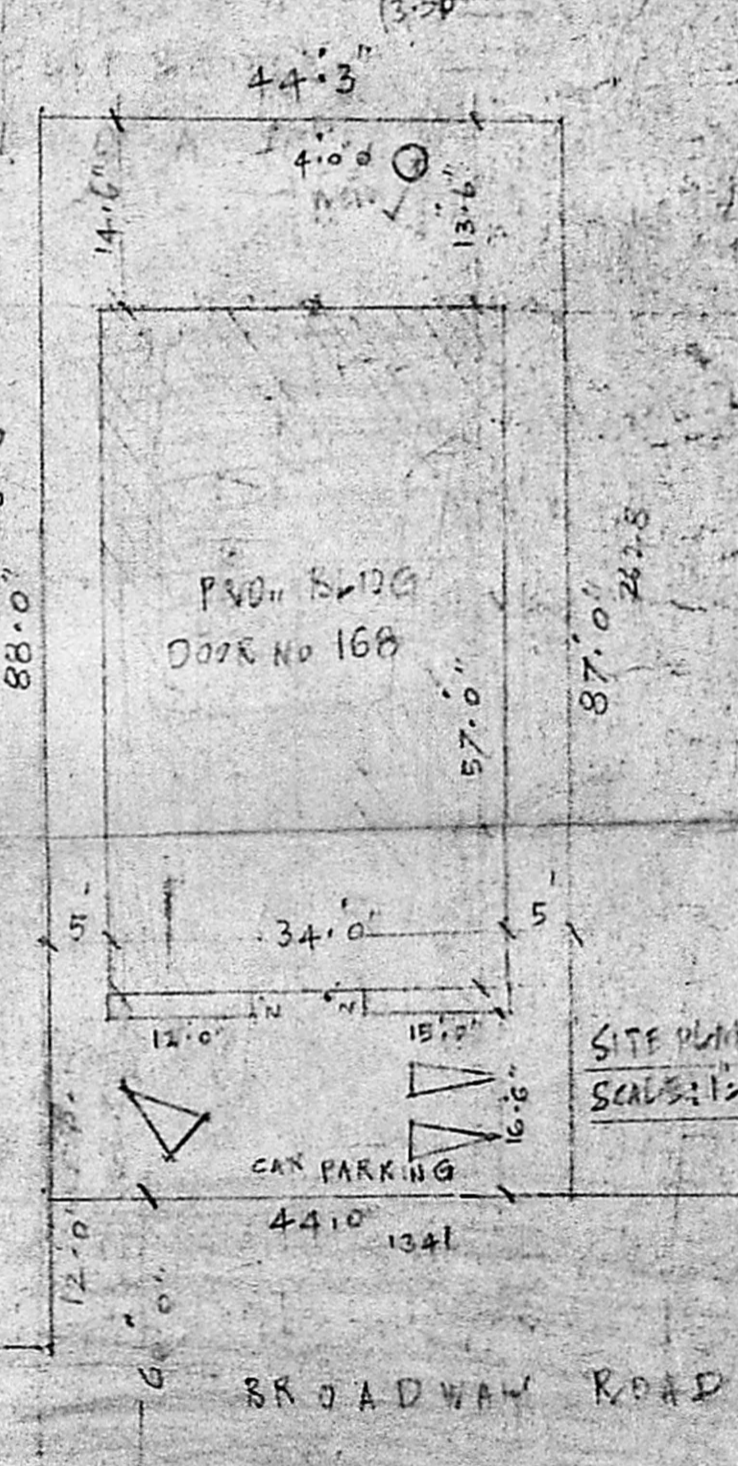 44'.3"
4'.0"ø
14'.6"
13'.6"
88'.0"
PRO.. BLDG
DOOR NO 168
57'.0"
87'.0"
26.28
5'
34'.0"
5'
12'.0"
15'.0"
SITE
SCALE: 1"
16'.6"
CAR PARKING
44'.0
1341
12'.0"
BROADWAY ROAD